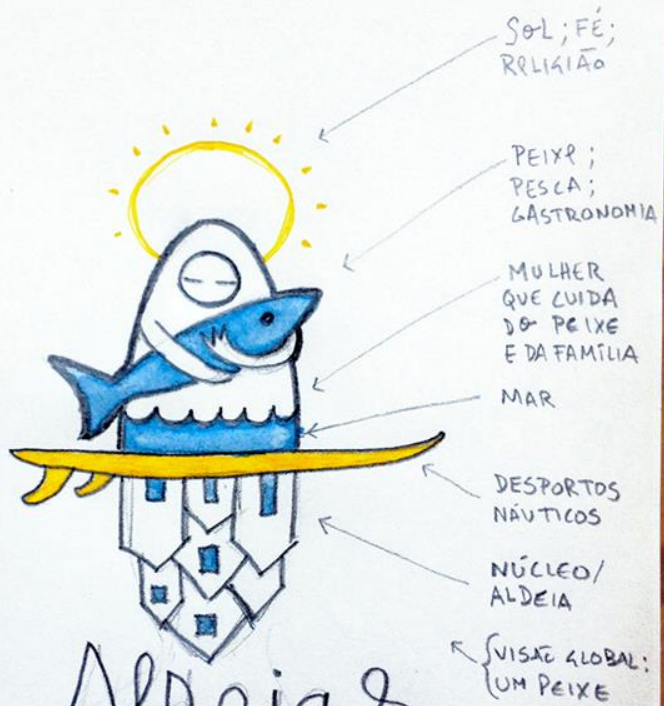 SOL; FÉ;
RELIGIÃO
PEIXE;
PESCA;
GASTRONOMIA
MULHER
QUE CUIDA
DO PEIXE
E DA FAMÍLIA
MAR
DESPORTOS
NÁUTICOS
NÚCLEO/
ALDEIA
VISÃO GLOBAL:
UM PEIXE